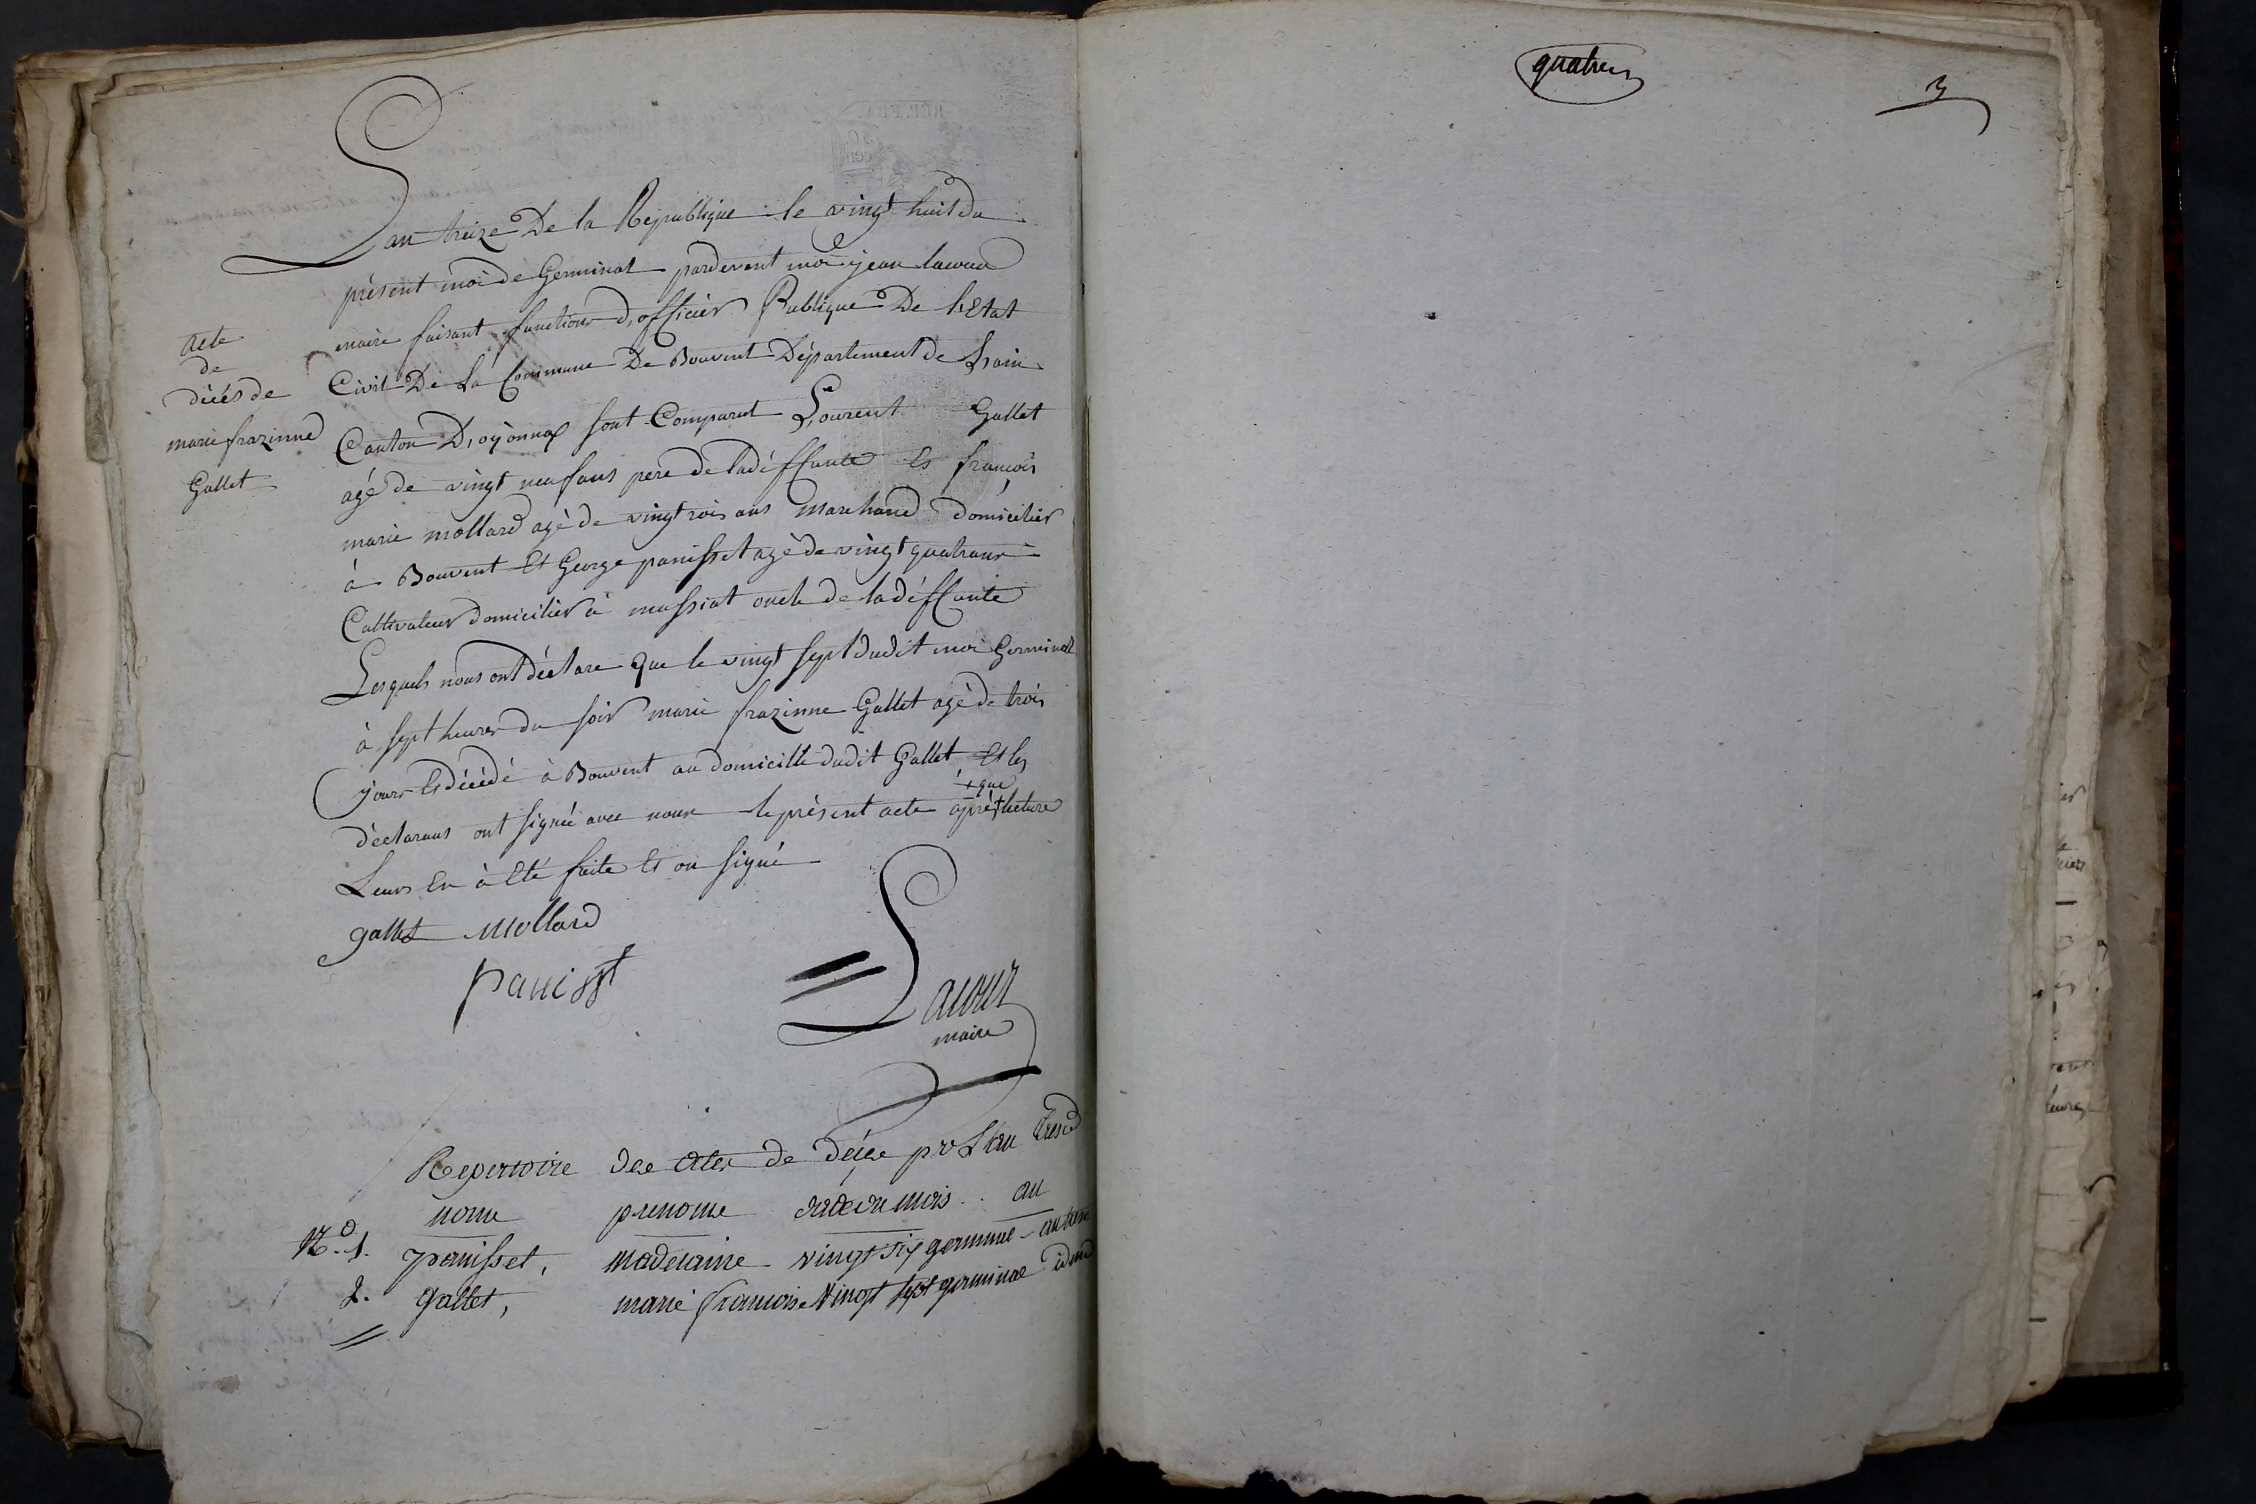 Lan treize De la Republique le vingt huit du
présent moi de Germinal pardevant moi jean lacour
maire faisant functions d'officier Publique De l'Etat
Civil De La Commune De Bouvent Département de Lain
Canton D'oyonnax sont Comparut Lourent Gallet
agé de vingt neuf ans pere de ladéffante Et françois
marie mollard agé de vingt rois ans marchand domicilier
à Bouvent Et George panisset agé de vingt quatrans
Cultivateur domicilier à massiat oncle de ladéffante
Lesquels nous ont déclare que le vingt sept dudit moi Germinal
à sept heures du soir marie frazinne Gallet agé de trois
jours Es décédé à Bouvent au domicille dudit Gallet Et les
+ que
déclarans ont signée avec nous le présent acte après + lecture
Leurs En à Eté faite Et on signé
acte
de
décés de
marie frazinne
Gallet
gallet mollard
panisset
Lacour
maire
Repertoire des actes de décés pr Lan treise
nome prenome date du mois an
No. 1. panisset, madelaine vingt six germinal an treise
2. gallet, marie francoise vingt sept germinal idem
quatre
3